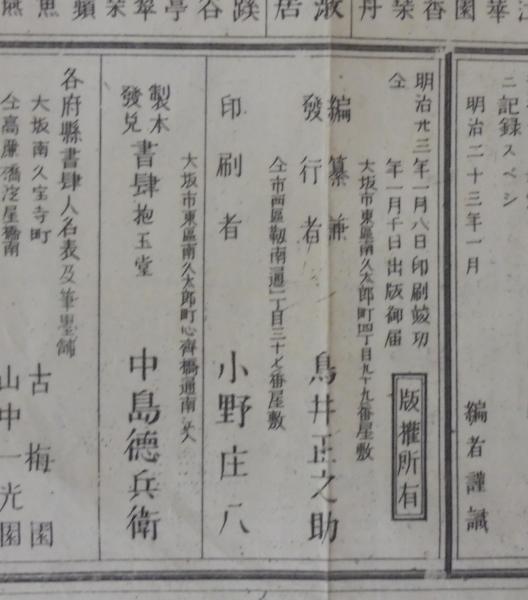 ニ記録スベシ
明治二十三年一月
編者謹識
明治廿三年一月八日印刷竣功
仝年一月十日出版御届
版權所有
大坂市東區南久太郎町四丁目九十九番屋敷
編纂兼
發行者
鳥井正之助
仝市西區靱南通二丁目三十七番屋敷
印刷者
小野庄八
大坂市東區南久太郎町心齊橋通南ヘ入
製本
發兌
書肆抱玉堂
中島德兵衛
各府縣書肆人名表及筆墨舗
大坂南久宝寺町
古梅園
仝高麗橋淀屋橋南
山中一光園